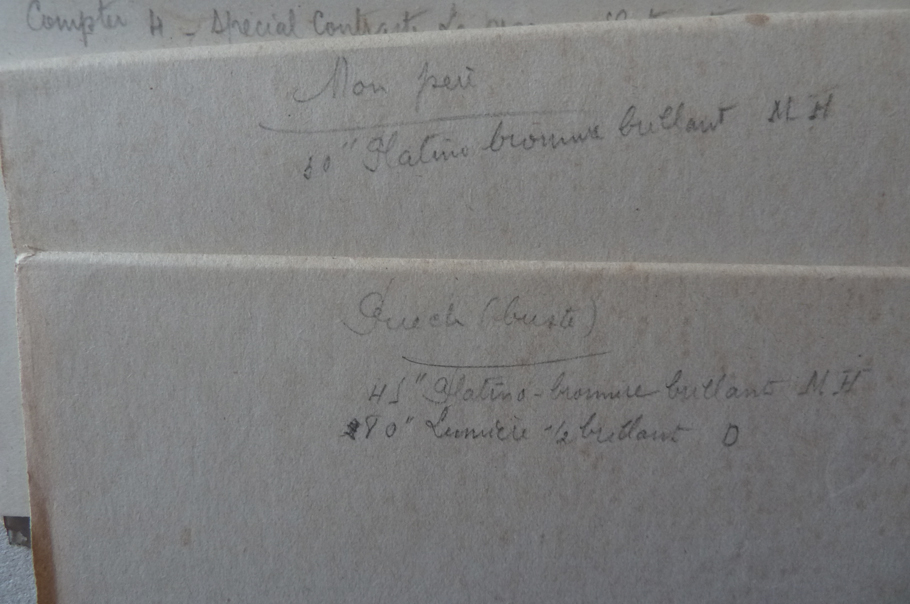 Compter 4 - Special Contraste
Mon père
30" Platino bromure brillant M H
Puech (buste)
45" Platino-bromure brillant M. H
80" Lumière - 1/2 brillant D